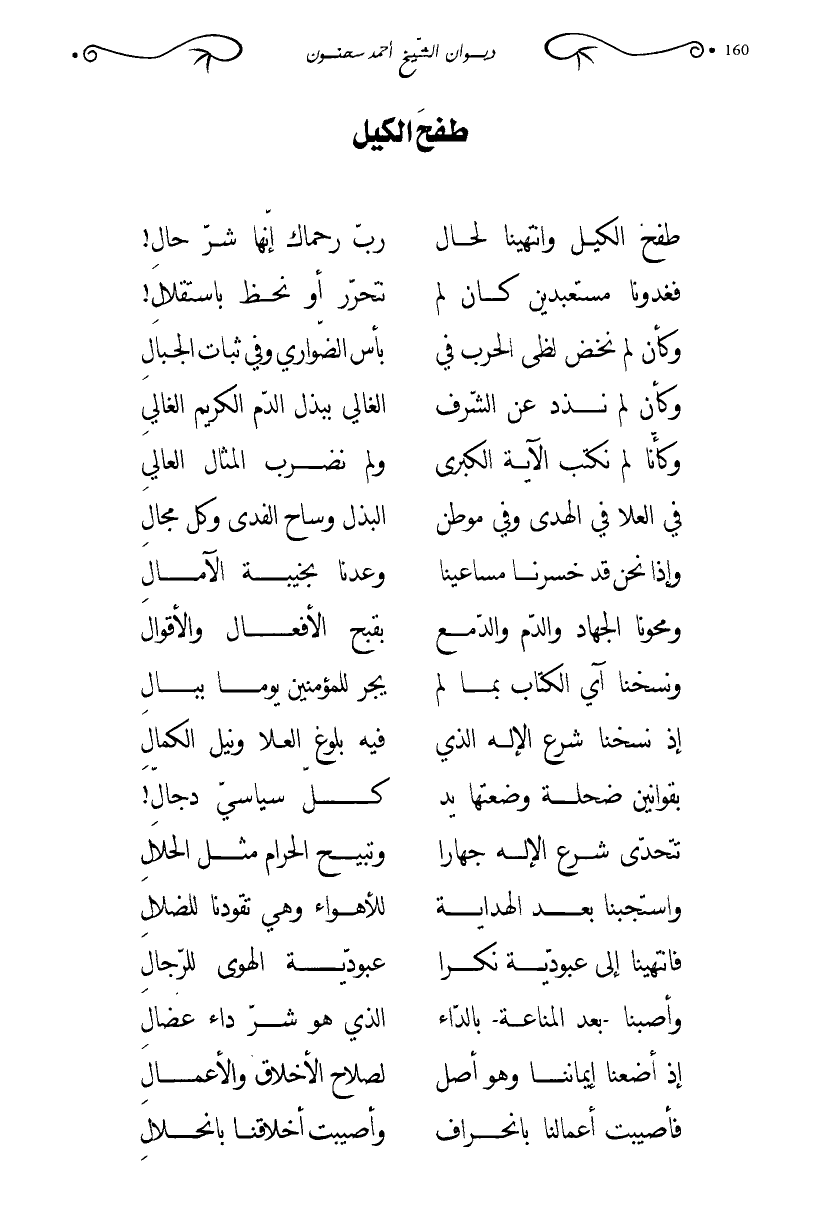 160 ديـوان الشّيخ أحمد سحنـون
طفحَ الكيل
طفحَ الكيـل وانتهينا لحـال ربّ رحماك إنّها شـرّ حالِ!
فغدونا مستعبدين كـان لم نتحرّر أو نحـظ باستقلالِ!
وكأن لم نخض لظى الحرب في بأس الضّواري وفي ثبات الجبالِ
وكأن لم نـذد عن الشّرف الغالي ببذل الدّم الكريم الغالي
وكأنّا لم نكتب الآيـة الكبرى ولم نضـرب المثال العالي
في العلا في الهدى وفي موطن البذل وساح الفدى وكل مجالِ
وإذا نحن قد خسرنـا مساعينا وعدنا بخيبـة الآمـالِ
ومحونا الجهاد والدّم والدّمـع بقبح الأفعـال والأقوالِ
ونسخنا آي الكتاب بمـا لم يجر للمؤمنين يومـا ببـالِ
إذ نسخنا شرع الإلـه الذي فيه بلوغ العـلا ونيل الكمالِ
بقوانين ضحلـة وضعتها يد كـلّ سياسيّ دجالِ!
تتحدّى شـرع الإلـه جهارا وتبيـح الحرام مثـل الحلالِ
واستجبنا بعـد الهدايـة للأهـواء وهي تقودنا للضلالِ
فانتهينا إلى عبوديّـة نكـرا عبوديّـة الهوى للرّجالِ
وأصبنا -بعد المناعـة- بالدّاء الذي هو شـرّ داء عضالِ
إذ أضعنا إيماننـا وهو أصل لصلاح الأخلاق والأعمـالِ
فأصيبت أعمالنا بانحـراف وأصيبت أخلاقنـا بانحـلالِ